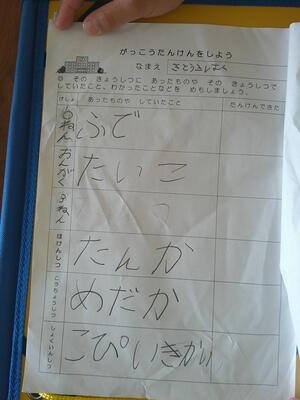 がっこうたんけんをしよう
なまえ
◎ その きょうしつに あったものや その きょうしつで
していたこと、わかったことなどを めもしましょう。
ばしょ あったものや していたこと たんけんできた
6ねん ふで
おんがく たいこ
3ねん つ
ほけんしつ たんか
こうちょうしつ めだか
しょくいんしつ こぴいきかい